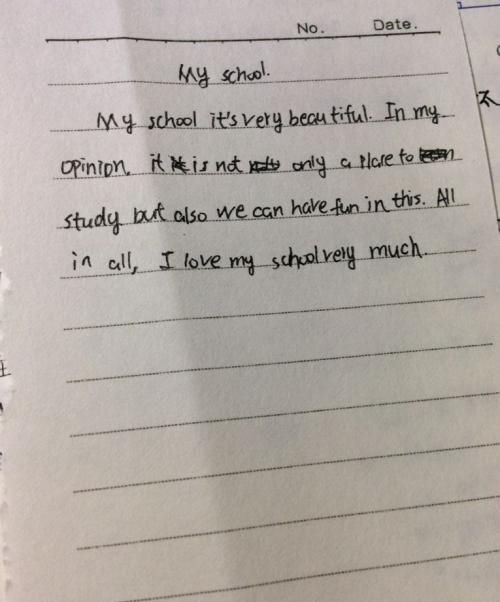 No. Date.
My school.
My school it's very beautiful. In my
opinion, it is not only a place to
study but also we can have fun in this. All
in all, I love my school very much.
不